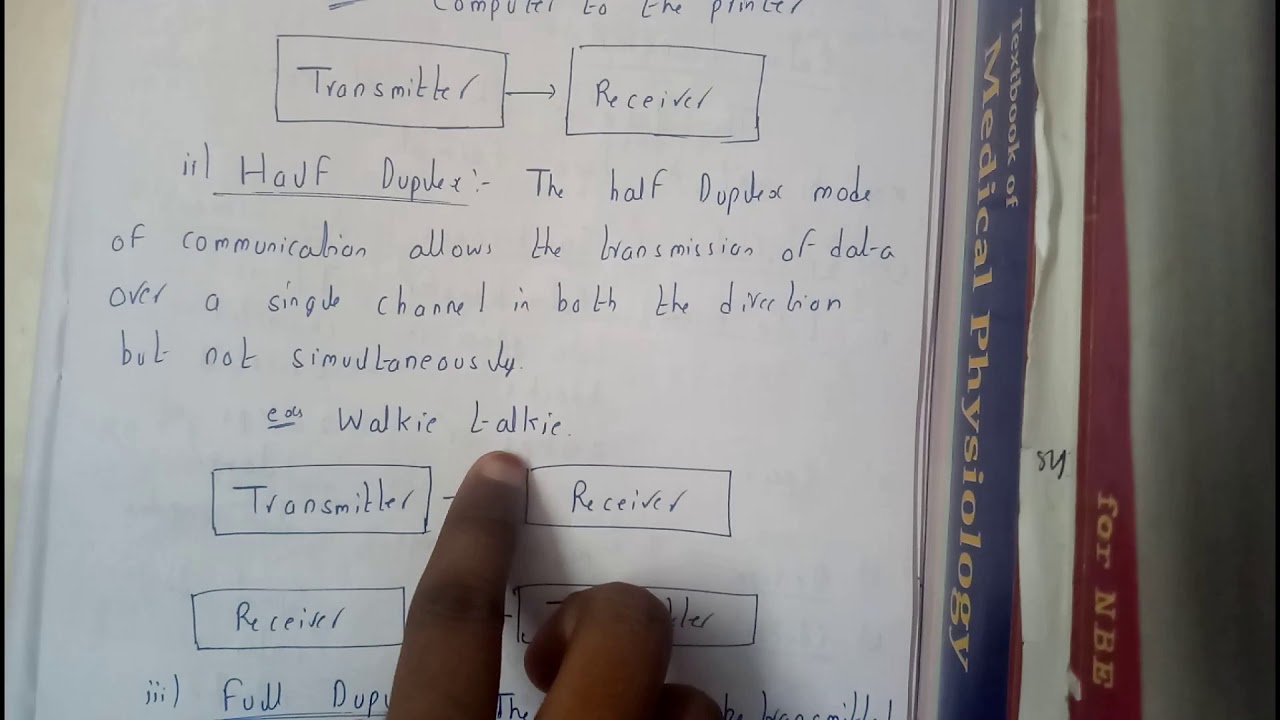 Computer to the printer
Transmitter → Receiver
ii) Half Duplex :- The half Duplex mode
of communication allows the transmission of data
over a single channel in both the direction
but not simultaneously.
ex Walkie talkie.
Transmitter Receiver
Receiver
iii) Full The be transmitted
Textbook of
Medical Physiology
for NBE